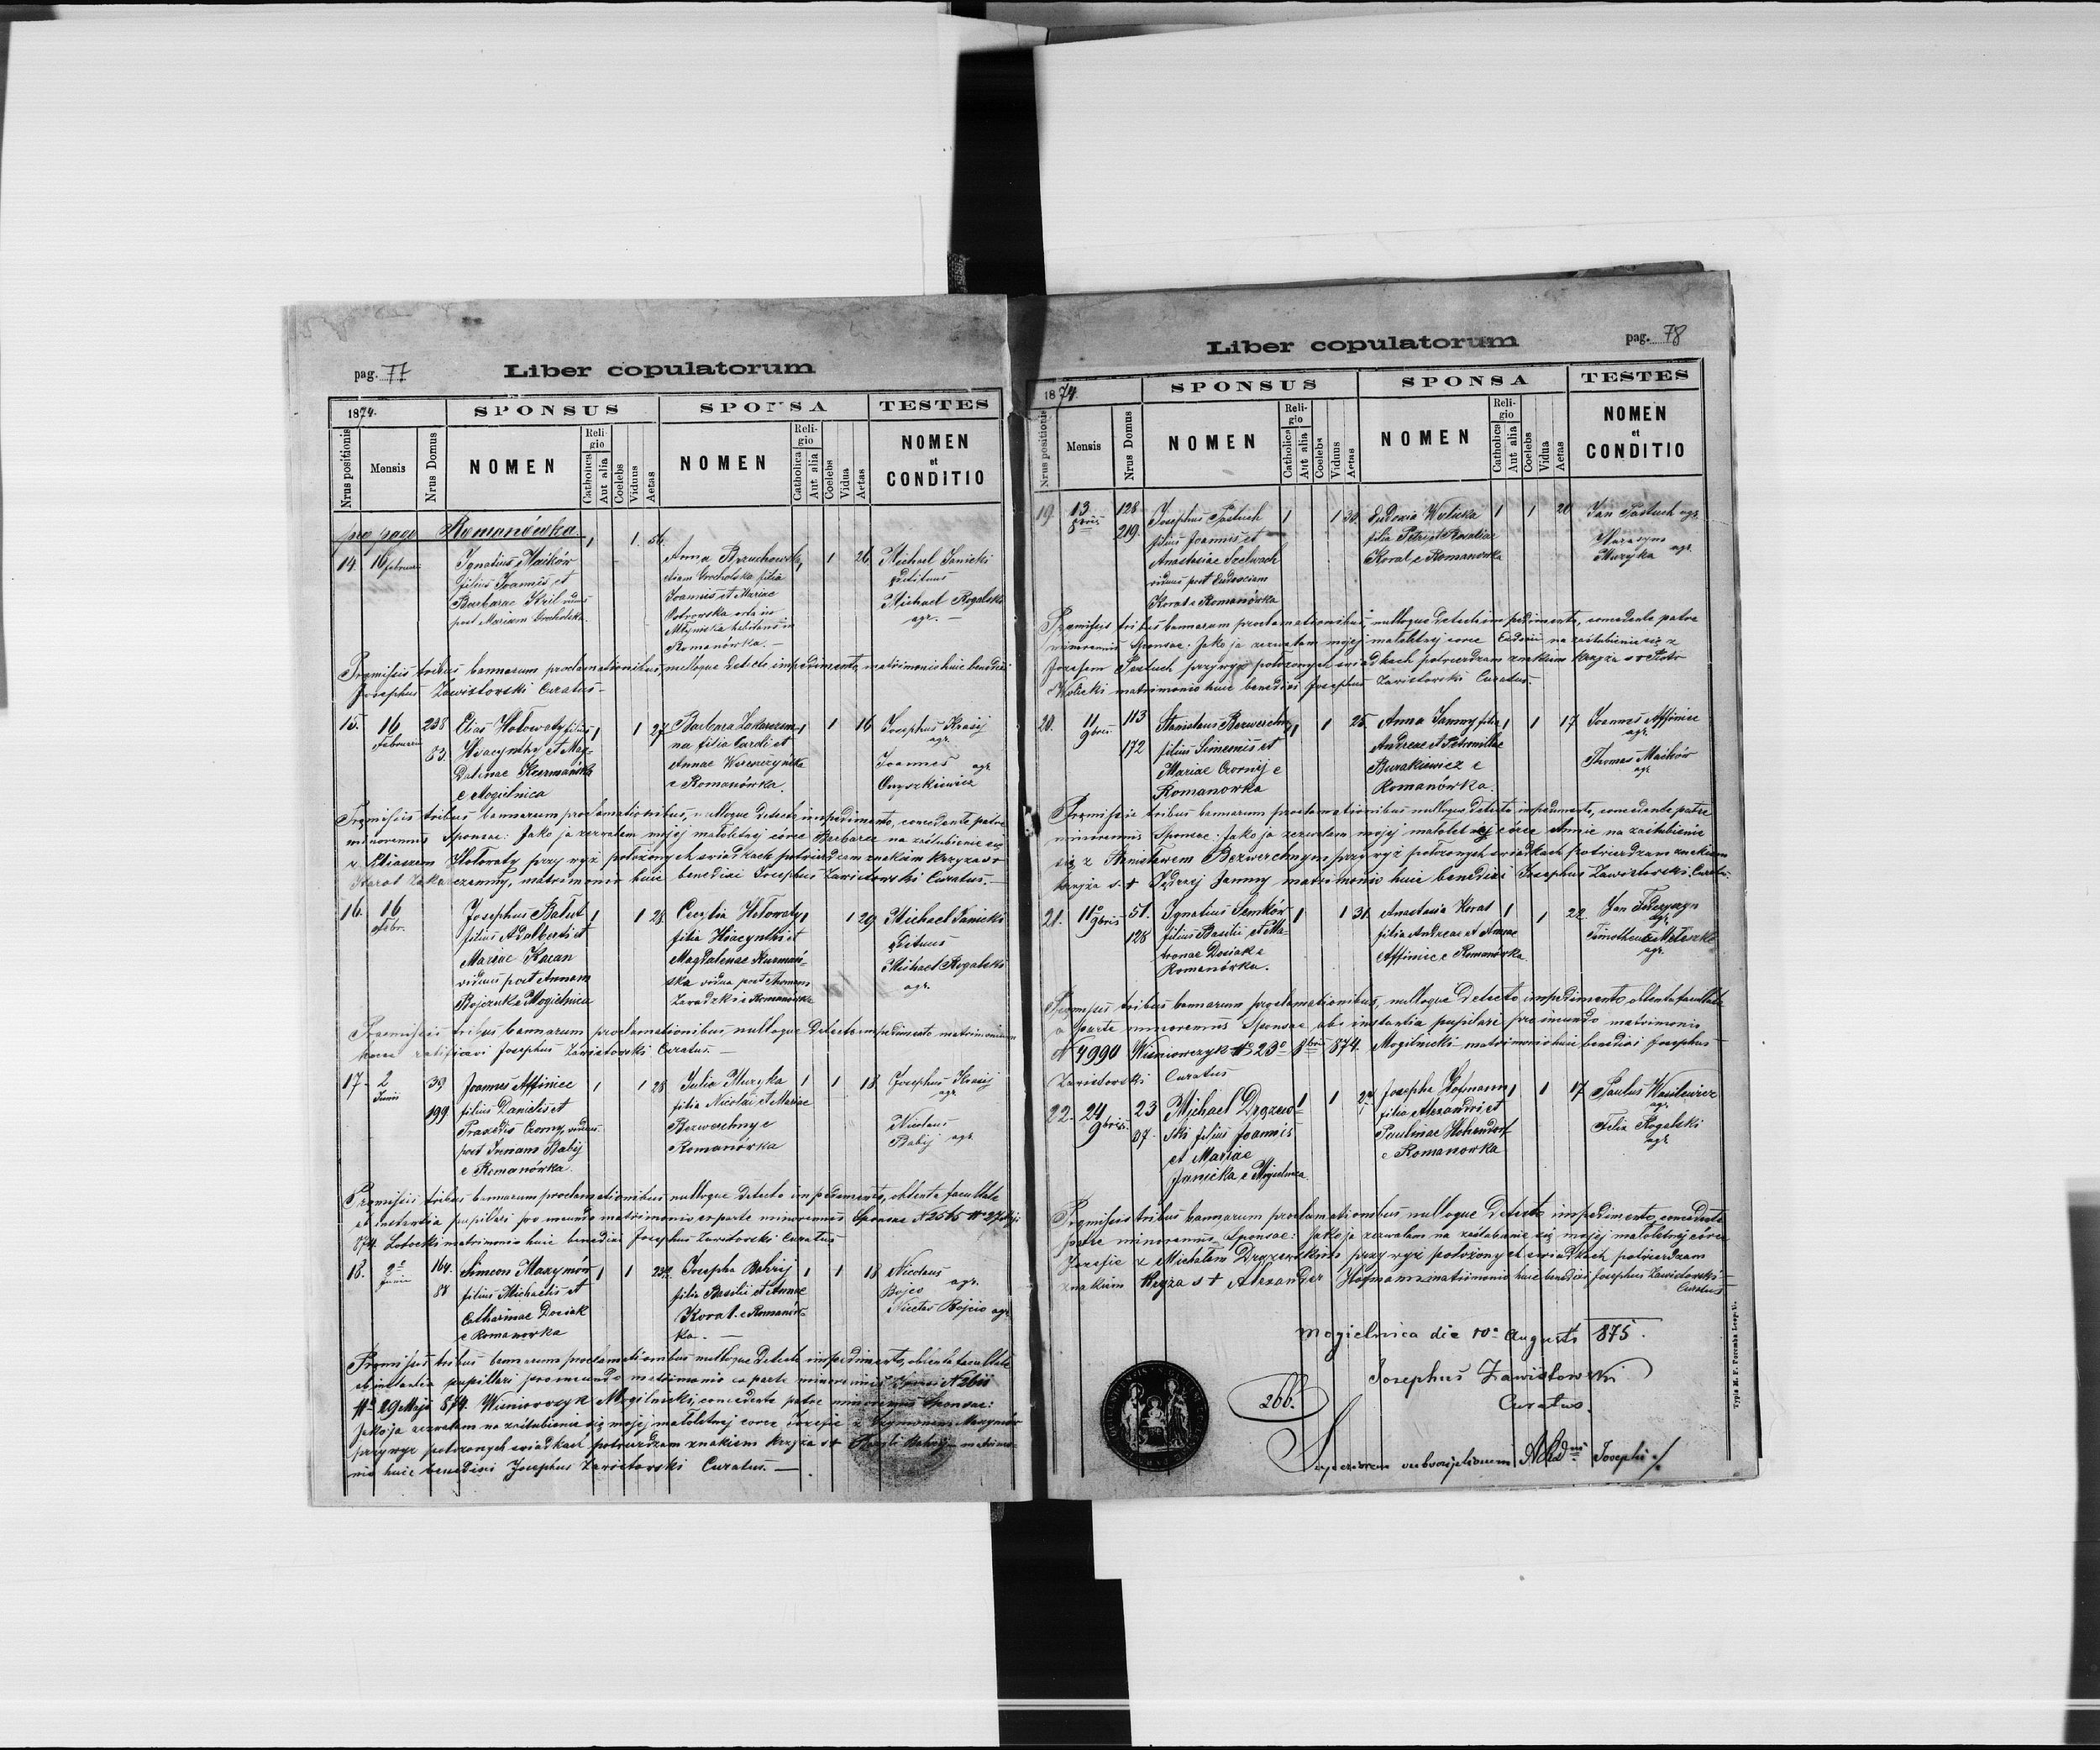 pag. 77
Liber copulatorum
1874.
SPONSUS
SPONSA
TESTES
Nrus positionis
Mensis
Nrus Domus
NOMEN
Religio
Catholica
Aut alia
Coelebs
Viduus
Aetas
NOMEN
Religio
Catholica
Aut alia
Coelebs
Vidua
Aetas
NOMEN
et
CONDITIO
pro pago Romanówka
14 16 februarii
Ignatius Maików
filius Joannis et
Barbarae Kril viduus
post Mariam Grocholska.
1 1. 56.
Anna Brzuchowska
filia
Joannis et Mariae
Ostrowska orta in
habitans in
Romanówka.
1 1 26
Michael Janicki
Michael Rogalski
agr.
Praemissis tribus bannorum proclamationibus, nulloque detecto impedimento matrimonio huic benedixi
Josephus Zawistowski Curatus
15. 16 Februarii 238 83.
Elias Hołowaty filius
Hyacynthy et Mag-
dalenae Kurmańska
e Mogielnica
1 1 27
Barbara
na filia Caroli et
Annae
e Romanówka.
1 1 16
Josephus Krasij
agr.
Joannes agr.
Onyszkiewicz
Praemissis tribus bannorum proclamationibus, nulloque detecto impedimento, concedente patre
minorennis Sponsae: Jako ja zezwalam mojej małoletniej córce Barbarze na zaślubienie się
z Eliaszem Hołowaty przy wyż położonych świadkach potwierdzam znakiem krzyża ś +
Karol matrimonio huic benedixi Josephus Zawistowski Curatus.
16. 16 Febr.
Josephus Bałut
filius Adalberti et
Mariae Kacan
viduus post Annam
Bojczuk e Mogielnica
1 1 28
Cecylia Hołowaty
filia Hiacynthi et
Magdalenae Kurmań-
ska vidua post Thomam
Zawadzki e Romanówka
1 1 29
Michael Janicki
Michael Rogalski
agr.
Praemissis tribus bannorum proclamationibus nulloque detecto impedimento matrimonium
hocce ratificavi Josephus Zawistowski Curatus.
17. 2 Junii 39. 199
Joannes Affinice
filius Danielis et
Praxedis Czorny, viduus
post Irenam Babij
e Romanówka.
1 1 28
Julia Muzyka
filia Nicolai et Mariae
Bezwerchny e
Romanówka
1 1 18
Josephus Krasij
agr.
Nicolaus
Babij agr.
Praemissis tribus bannorum proclamationibus nulloque detecto impedimento, obtenta facultate
ab instantia pupillari pro ineundo matrimonio ex parte minorennis Sponsae
874. matrimonio huic benedixi Josephus Zawistowski Curatus
18. 2 Junii 164. 88
Simeon Maxymów
filius Michaelis et
Catharinae Dociak
e Romanówka
1 1
Josepha Bahrij
filia Basilii et Annae
Koral. e Romanów-
ka.
1 1 18
Nicolaus agr.
Bojco
Nicetas Bojcio agr.
Praemissis tribus bannorum proclamationibus nulloque detecto impedimento, obtenta facultate
ab instantia pupillari pro ineundo matrimonio ex parte minorennis
29 Maja 874. Wisniowczyk Mogilnicki, concedente patre minorennis Sponsae:
Jako ja zezwalam na zaślubienie się mojej małoletniej córce Józefie z Szymonem Maxymów
przy wyż położonych świadkach potwierdzam znakiem krzyża ś + Bahrij matrimo-
nio huic benedixi Josephus Zawistowski Curatus.
pag. 78
Liber copulatorum
1874.
SPONSUS
SPONSA
TESTES
Nrus positionis
Mensis
Nrus Domus
NOMEN
Religio
Catholica
Aut alia
Coelebs
Viduus
Aetas
NOMEN
Religio
Catholica
Aut alia
Coelebs
Vidua
Aetas
NOMEN
et
CONDITIO
19. 13 128 219.
Josephus Pastuch
filius Joannis et
Anastasiae
viduus post Eudociam
Koral e Romanówka
1 1 30.
Eudoxia Wolicka
filia Petri et Rosaliae
Koral e Romanówka
1 1 20
Jan Pastuch agr.
Harasym agr.
Muzyka
Praemissis tribus bannorum proclamationibus, nulloque detecto impedimento, concedente patre
minorennis Sponsae: Jako ja zezwalam mojej małoletniej córce Eudoxii na zaślubienie się z
Józefem Pastuch przy wyż położonych świadkach potwierdzam znakiem krzyża ś + Piotr
Wolicki matrimonio huic benedixi Josephus Zawistowski Curatus.
20. 11 9bris 113 172
Stanislaus Bezwerchny
filius Simeonis et
Mariae Czornij e
Romanówka
1 1 25.
Anna Jamny filia
Andreae et Petronillae
Burakiewicz e
Romanówka.
1 1 17
Joannes Affinice
agr.
Thomas Maików
agr.
Praemissis tribus bannorum proclamationibus nulloque detecto impedimento, concedente patre
minorennis Sponsae: Jako ja zezwalam mojej małoletniej córce Annie na zaślubienie
się z Stanisławem Bezwerchnym przy wyż położonych świadkach potwierdzam znakiem
krzyża ś. + Jędrzej Jamny matrimonio huic benedixi Josephus Zawistowski Curatus
21. 11 9bris 51. 128
Ignatius Semków
filius Basilii et Ma-
tronae Dociak e
Romanówka.
1 1 31.
Anastasia Koral
filia Andreae et Annae
Affinice e Romanówka.
1 1 22
Jan
agr.
Timotheus
agr.
Praemissis tribus bannorum proclamationibus, nulloque detecto impedimento, obtenta facultate
a parte minorennis Sponsae ab instantia pupilari pro ineundo matrimonio
N 4990 Wisniowczyk 23 8bris 874. Mogilnicki matrimonio huic benedixi Josephus
Zawistowski Curatus
22. 24 9bris 23 87.
Michael Drozew-
ski filius Joannis
et Mariae
Janicka e Mogielnica.
1 1
Josepha Hofmann
filia Alexandri et
Paulinae Hohendorf
e Romanowka
1 1 17
Paulus Wasilewicz
agr.
Felix Rogalski
agr.
Praemissis tribus bannorum proclamationibus nulloque detecto impedimento, concedente
patre minorennis Sponsae: Jako ja zezwalam na zaślubienie się mojej małoletniej córce
Józefie z Michałem Drozewskim przy wyż położonych świadkach potwierdzam
znakiem krzyża ś + Alexander Hofmann matrimonio huic benedixi Josephus Zawistowski
Curatus
Mogielnica die 10a Augusti 875.
Josephus Zawistowski
Curatus.
266.
Superiorem subscriptionem Josephi